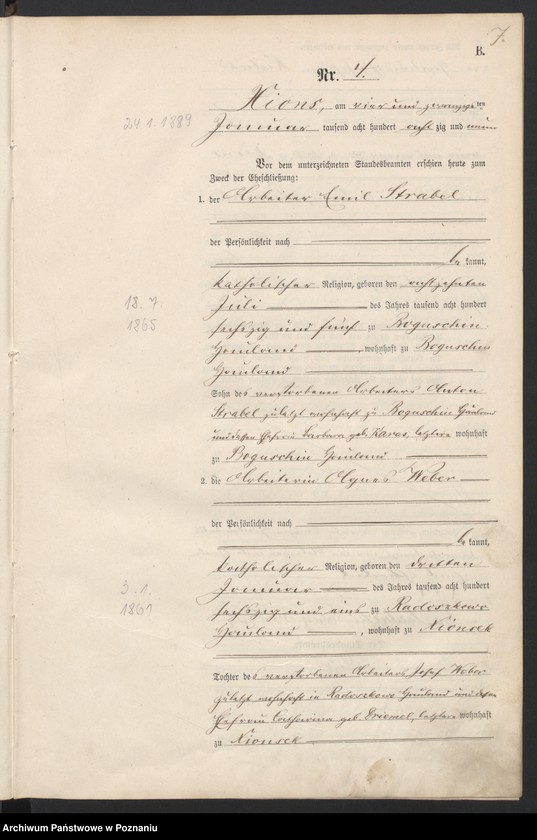 7.
B.
Nr. 4.
Xions, am vier und zwanzigsten
24 1. 1889
Januar tausend acht hundert acht zig und neun
Vor dem unterzeichneten Standesbeamten erschien heute zum
Zweck der Eheschließung:
1. der Arbeiter Emil Strabel
der Persönlichkeit nach
be kannt,
katholischer Religion, geboren den achtzehnten
18. 7.
1865
Juli des Jahres tausend acht hundert
sechszig und fünf zu Boguschin
Hauland, wohnhaft zu Boguschin
Hauland
Sohn des verstorbenen Arbeiters Anton
Strabel zuletzt wohnhaft zu Boguschin Hauland
und dessen Ehefrau Barbara geb. Karas, letztere wohnhaft
zu Boguschin Hauland
2. die Arbeiterin Agnes Weber
der Persönlichkeit nach
be kannt,
katholischer Religion, geboren den dritten
3. 1.
1861
Januar des Jahres tausend acht hundert
sechszig und eins zu Radoszkowo
Hauland, wohnhaft zu Xionsek
Tochter des verstorbenen Arbeiters Josef Weber
zuletzt wohnhaft in Radoszkowo Hauland und dessen
Ehefrau Catharina geb., letztere wohnhaft
zu Xionsek
Archiwum Państwowe w Poznaniu